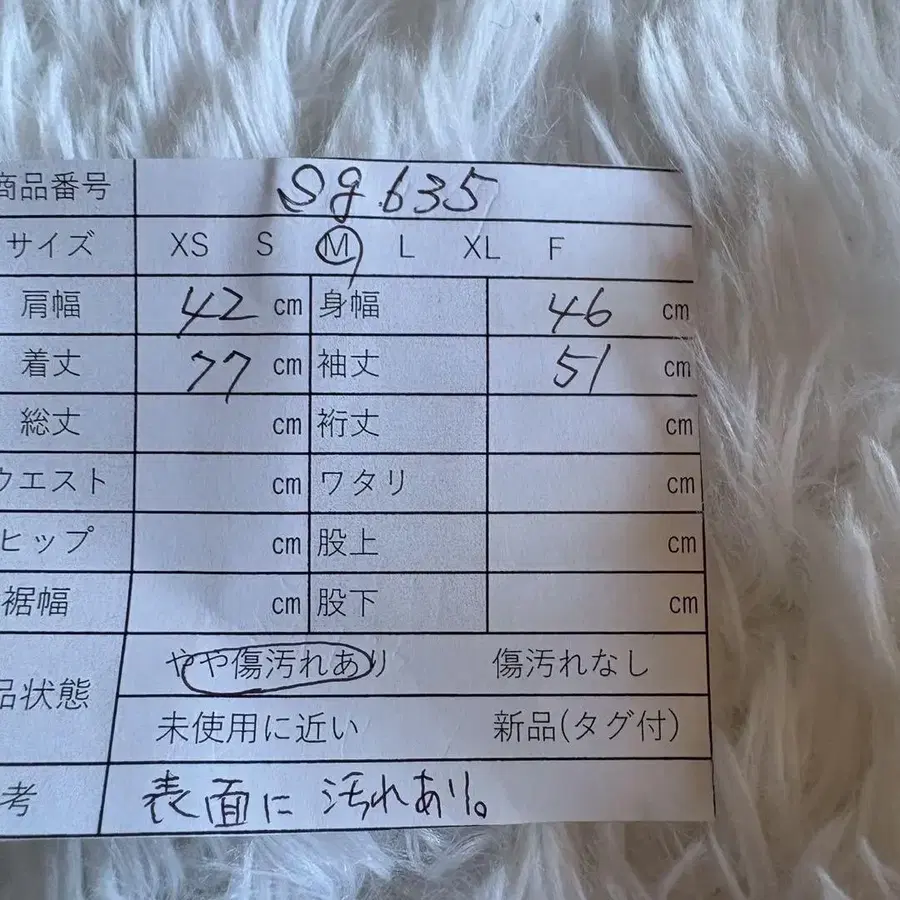 商品番号 Sg635
サイズ XS S M L XL F
肩幅 42 cm 身幅 46 cm
着丈 77 cm 袖丈 51 cm
総丈 cm 裄丈 cm
ウエスト cm ワタリ cm
ヒップ cm 股上 cm
裾幅 cm 股下 cm
やや傷汚れあり 傷汚れなし
品状態
未使用に近い 新品(タグ付)
考 表面に汚れあり。